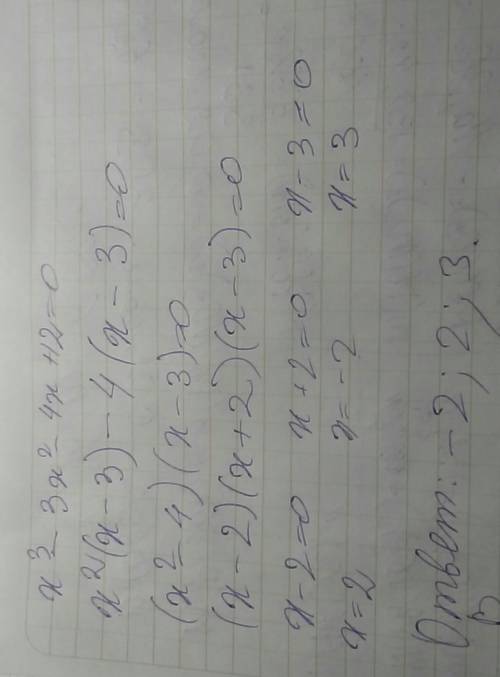 x³ - 3x² - 4x + 12 = 0
x²(x - 3) - 4(x - 3) = 0
(x² - 4)(x - 3) = 0
(x - 2)(x + 2)(x - 3) = 0
x - 2 = 0 x + 2 = 0 x - 3 = 0
x = 2 x = -2 x = 3
Ответ: -2; 2; 3.